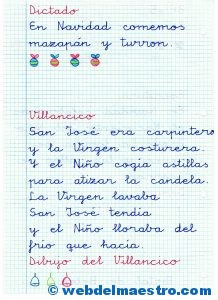 Dictado
En Navidad comemos
mazapán y turron.
Villancico
San José era carpintero
y la Virgen costurera.
Y el Niño cogia astillas
para atizar la candela.
La Virgen lavaba
San José tendia
y el Niño lloraba del
frio que hacia.
Dibujo del Villancico
© webdelmaestro.com